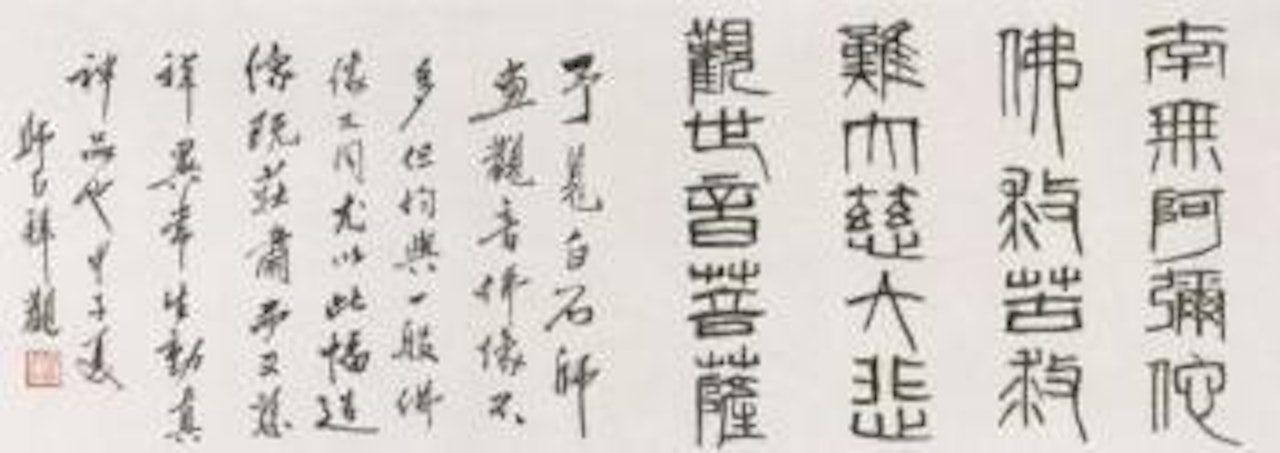 南無阿彌佗
佛救苦救
難大慈大悲
觀世音菩薩
予見白石師
畫觀音佛像不
多但均與一般佛
像不同尤以此幅造
像既莊肅而又慈
祥異常生動真
神品也甲子夏
祥觀